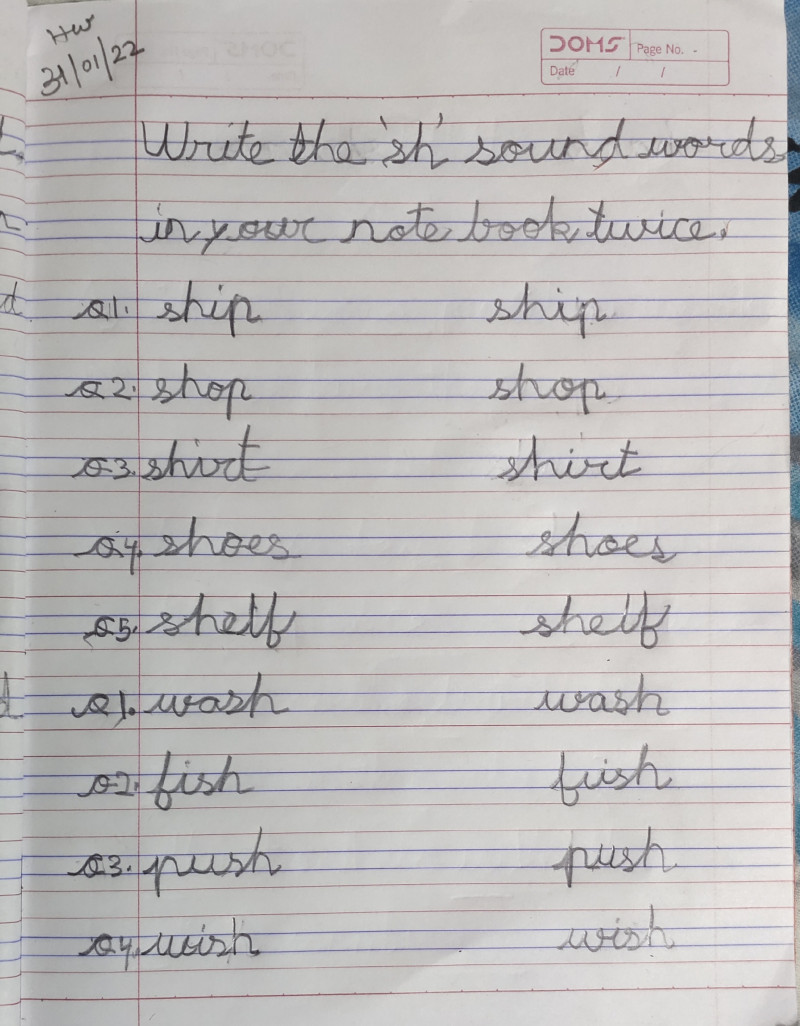 HW
31/01/22
DOMS Page No. -
Date / /
Write the 'sh' sound words
in your note book twice.
Q1. ship ship
Q2. shop shop
Q3. shirt shirt
Q4. shoes shoes
Q5. shelf shelf
Q1. wash wash
Q2. fish fish
Q3. push push
Q4. wish wish